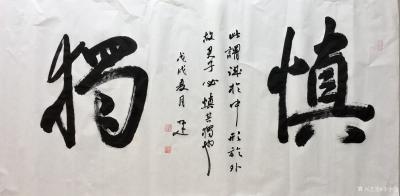 慎獨
此謂誠於中形於外
故君子必慎其獨也
戊戌夏月